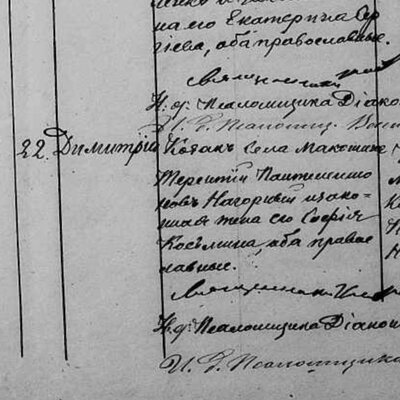 на его Екатерина Сер
гіева, оба православные.
И. д. Псаломщика Діако
22. Димитрій Козак Села Макошина
Терентій Пантелеимо
новъ Нагорный и зако-
ная жена его Софія
Косьмина, оба право
славные.
Священник
И. д. Псаломщика Діако
И. д. Псаломщика